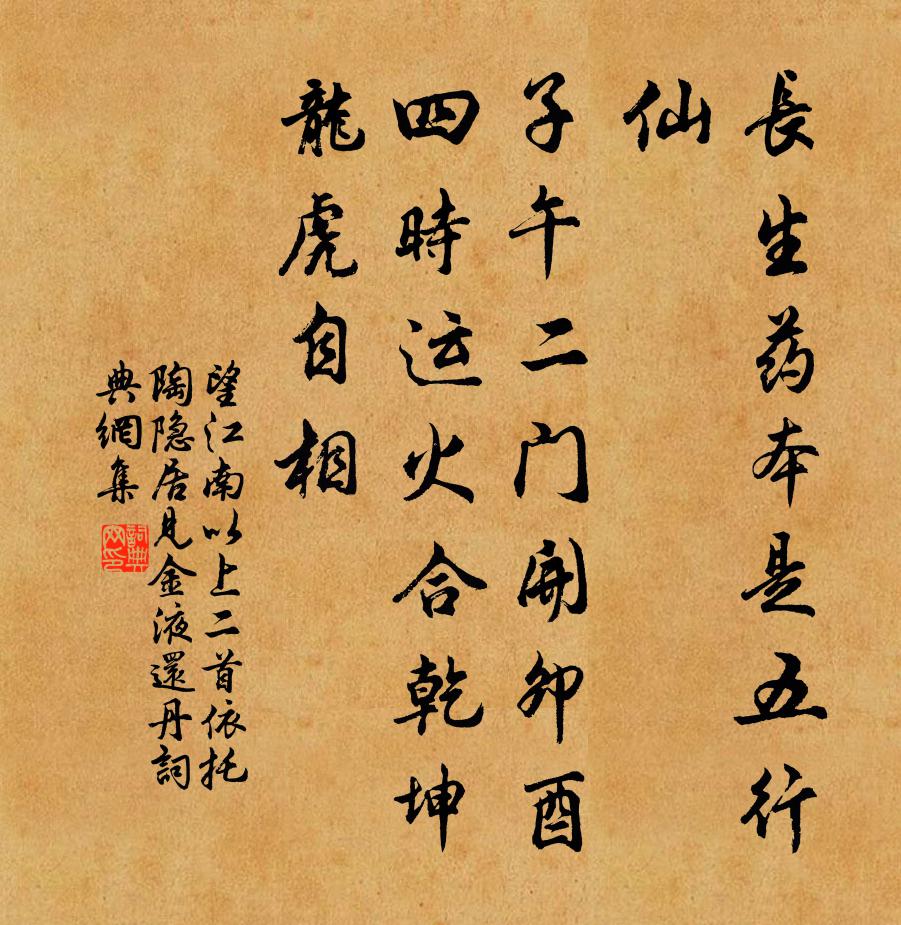 長生药本是五行
仙
子午二门開卯酉
四時运火合乾坤
龍虎自相
望江南以上二首依托
陶隐居見金液還丹詞
典網集
詞典
网印